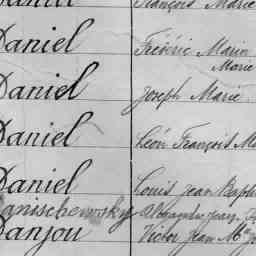 François Marie
Daniel Frédéric Marie
Marie
Daniel Joseph Marie
Daniel Léon François M
Daniel Louis Jean Bapti
anischewsky Alexandre Jean
Danjou Victor Jean Mie